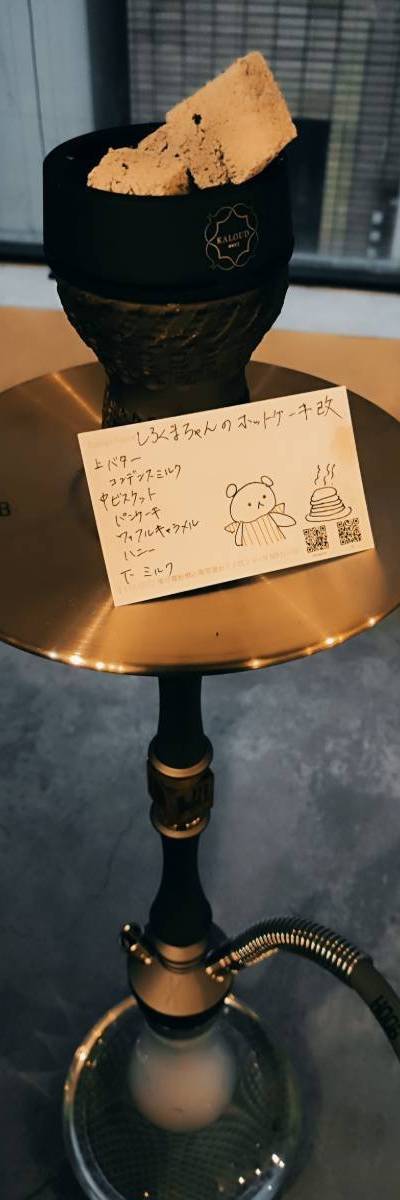 KALOUD
しろくまちゃんのホットケーキ改
上 バター
コンデンスミルク
中 ビスケット
パンケーキ
ワッフルキャラメル
ハニー
下 ミルク
B
HOOK